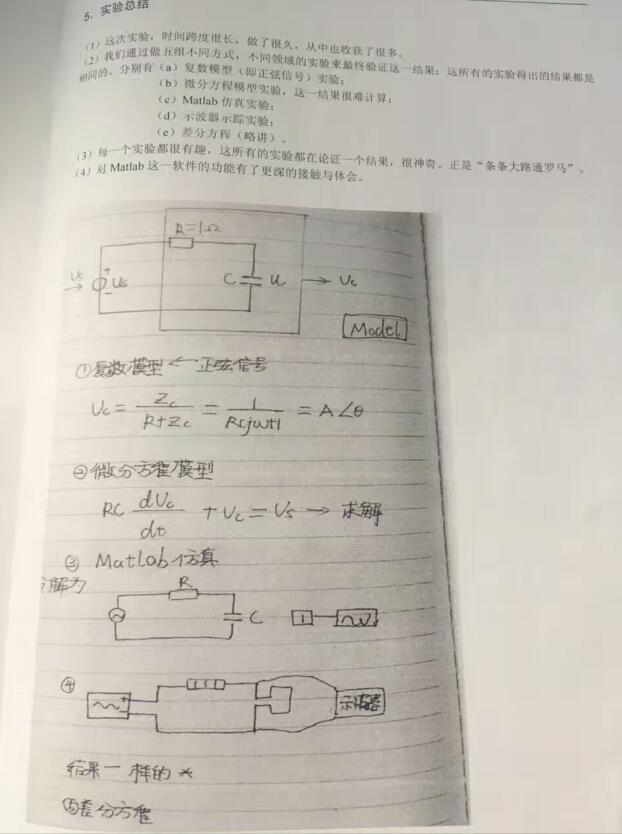 5. 实验总结
(1) 这次实验，时间跨度很长，做了很久，从中也收获了很多。
(2) 我们通过做五组不同方式，不同领域的实验来最终验证这一结果：这所有的实验得出的结果都是
相同的。分别有 (a) 复数模型（即正弦信号）实验；
(b) 微分方程模型实验，这一结果很难计算；
(c) Matlab 仿真实验；
(d) 示波器示踪实验；
(e) 差分方程（略讲）。
(3) 每一个实验都很有趣，这所有的实验都在论证一个结果，很神奇。正是“条条大路通罗马”。
(4) 对 Matlab 这一软件的功能有了更深的接触与体会。
R=1Ω
Us + Us − C u → Uc
Model
①复数模型 ← 正弦信号
Uc = Zc/(R+Zc) = 1/(RCjw+1) = A∠θ
②微分方程模型
RC dUc/dt + Uc = Us → 求解
③ Matlab仿真
分解为
R
C
④
示波器
结果一样的
⑤差分方程